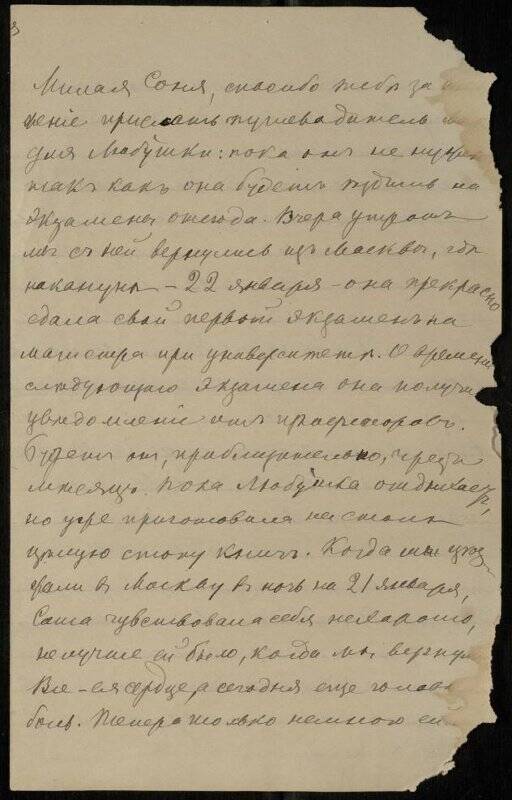 Милая Соня, спасибо тебѣ за
женіе прислать путеводитель
для Любушки: пока онъ не нуженъ
такъ какъ она будетъ ѣздить на
экзамены отсюда. Вчера утромъ
мы съ ней вернулись изъ Москвы, гдѣ
наканунѣ – 22 января – она прекрасно
сдала свой первый экзаменъ на
магистра при университетѣ. О времени
слѣдующаго экзамена она получи
увѣдомленіе отъ профессоровъ.
Будетъ он, приблизительно, черезъ
мѣсяцъ. Пока Любушка отдыхаетъ,
но уже приготовила на столѣ
цѣлую стопу книгъ. Когда мы уѣз-
жали в Москву в ночь на 21 января,
Саша чувствовала себя нехорошо,
не лучше ей было, когда мы верну
Все – ея сердце, а сегодня еще голов
боль. Теперь только немного ей